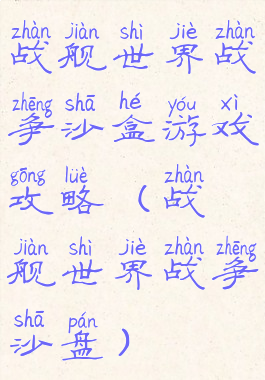 zhàn jiàn shì jiè zhàn
战舰世界战
zhēng shā hé yóu xì
争沙盒游戏
gōng lüè zhàn
攻略（战
jiàn shì jiè zhàn zhēng
舰世界战争
shā pán
沙盘）